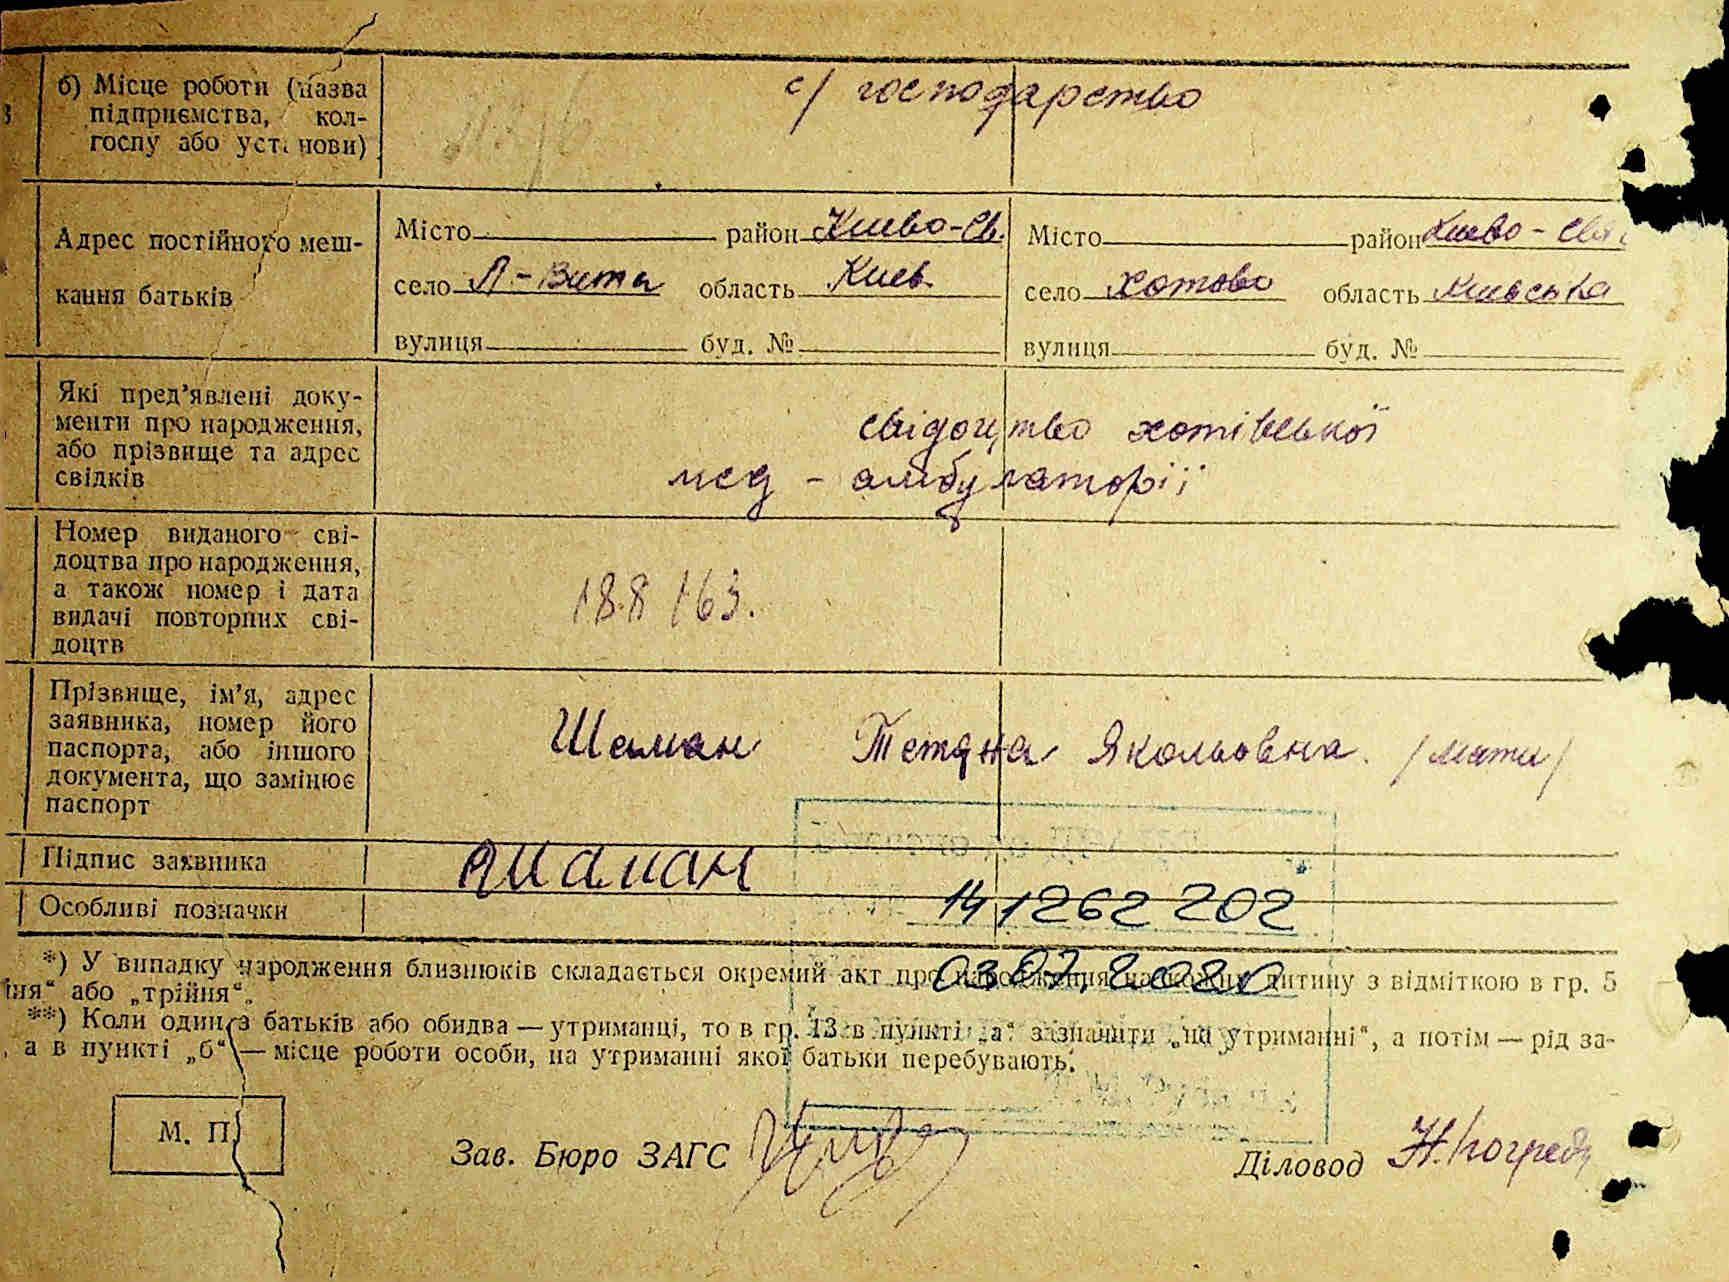 б) Місце роботи (назва
підприємства, кол-
госпу або установи)
с/ господарство
Адрес постійного меш-
кання батьків
Місто район Киево-Св.
село Л-Вита область Киев
вулиця буд. №
Місто район Киево-Свя
село Хотово область Киевська
вулиця буд. №
Які пред'явлені доку-
менти про народження,
або прізвище та адрес
свідків
свідоцтво хотівської
мед - амбулаторії
Номер виданого сві-
доцтва про народження,
а також номер і дата
видачі повторних сві-
доцтв
188 163.
Прізвище, ім'я, адрес
заявника, номер його
паспорта, або іншого
документа, що замінює
паспорт
Шаман Тетяна Якольовна. /мати/
Підпис заявника
Шаман
Особливі позначки
141262 202
03 07. 2020
*) У випадку народження близнюків складається окремий акт про народження на кожну дитину з відміткою в гр. 5
йня" або „трійня".
**) Коли один з батьків або обидва — утриманці, то в гр. 13 в пункті „а" зазначити „на утриманні", а потім — рід за-
, а в пункті „б" — місце роботи особи, на утриманні якої батьки перебувають.
М. П.
Зав. Бюро ЗАГС
Діловод